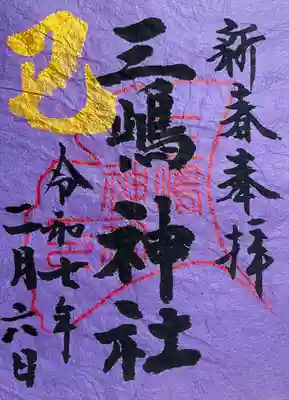 新春奉拝
三嶋神社
巳
令和七年
二月六日